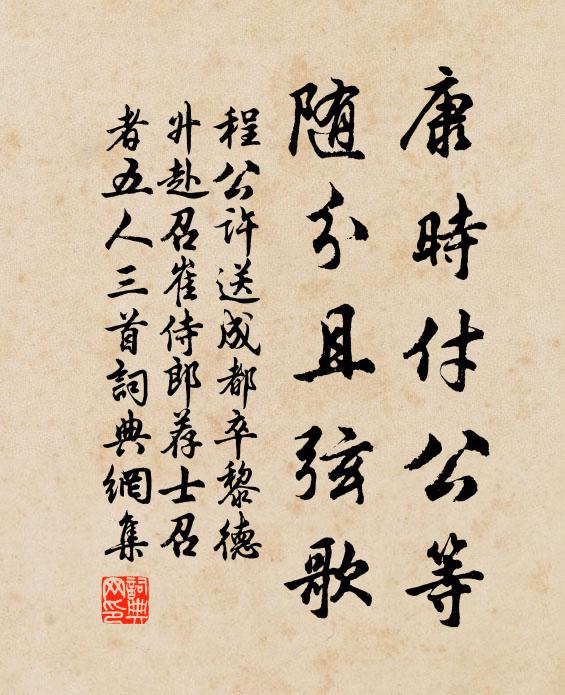 康時付公等
随分且弦歌
程公许送成都卒黎德
升赴召崔侍郎荐士召
者五人三首詞典網集
詞典网印